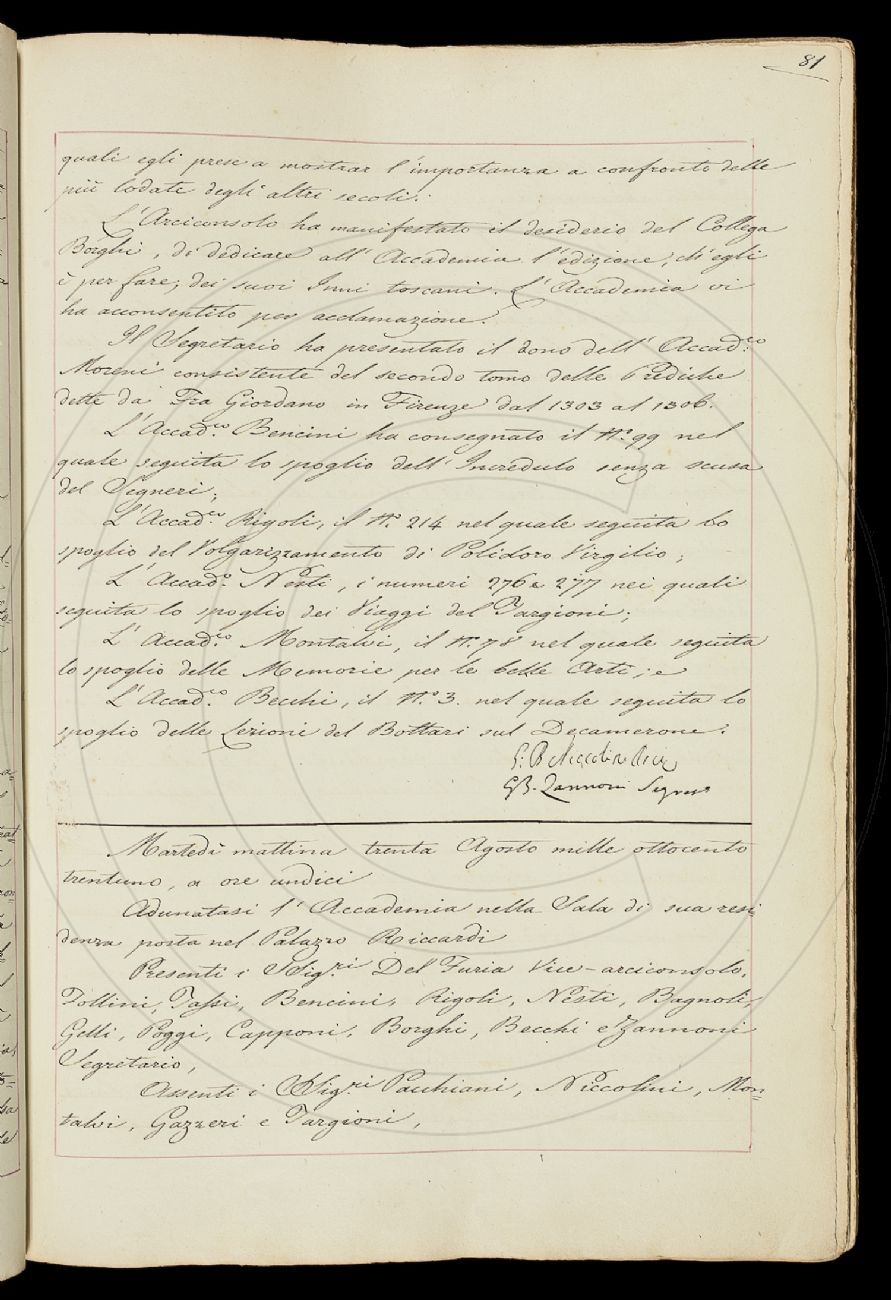 81
quali egli prese a mostrar l'importanza a confronto delle
più lodate degli altri secoli.
L'Arciconsolo ha manifestato il desiderio del Collega
Borghi, di dedicare all'Accademia l'edizione, ch'egli
è per fare, dei suoi Inni toscani. L'Accademia vi
ha acconsentito per acclamazione.
Il Segretario ha presentato il dono dell'Accad.co
Moreni consistente del secondo tomo delle Prediche
dette da Fra Giordano in Firenze dal 1303 al 1306.
L'Accad.co Bencini ha consegnato il N.o 99 nel
quale seguita lo spoglio dell'Incredulo senza scusa
del Segneri;
L'Accad.co Rigoli, il N.o 214 nel quale seguita lo
spoglio del Volgarizzamento di Polidoro Virgilio;
L'Accad.o Nesti, i numeri 276 e 277 nei quali
seguita lo spoglio dei Viaggi del Targioni;
L'Accad.co Montalvi, il N.o 78 nel quale seguita
lo spoglio delle Memorie per le belle Arti; e
L'Accad.co Becchi, il N.o 3. nel quale seguita lo
spoglio delle Lezioni del Bottari sul Decamerone.
G. B. Niccolini
G.B. Zannoni Segret.o
Martedì mattina trenta Agosto mille ottocento
trentuno, a ore undici
Adunatasi l'Accademia nella Sala di sua resi
denza posta nel Palazzo Riccardi
Presenti i Sig.ri Del Furia Vice-arciconsolo,
Follini, Tassi, Bencini, Rigoli, Nesti, Bagnoli,
Gelli, Poggi, Capponi, Borghi, Becchi e Zannoni
Segretario,
Assenti i Sig.ri Pacchiani, Niccolini, Mon=
talvi, Gazzeri e Targioni,